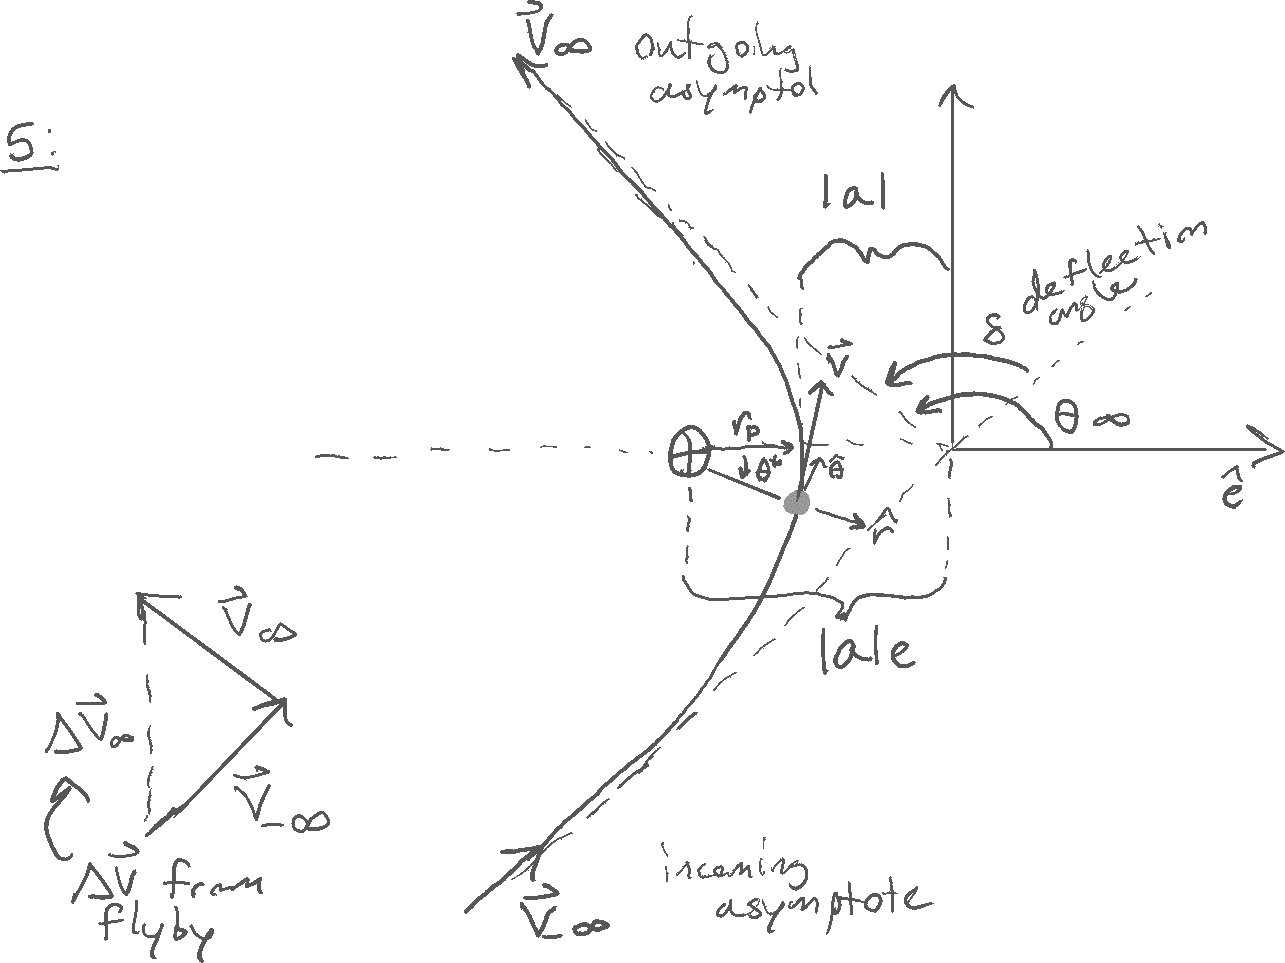 5:
V⃗∞ outgoing
asymptot
|a|
δ deflection
angle
θ∞
V⃗
r_p
θ*
θ̂
r̂
ê
|a|e
V⃗∞
ΔV⃗∞
V⃗-∞
ΔV⃗ from
flyby
incoming
asymptote
V⃗-∞